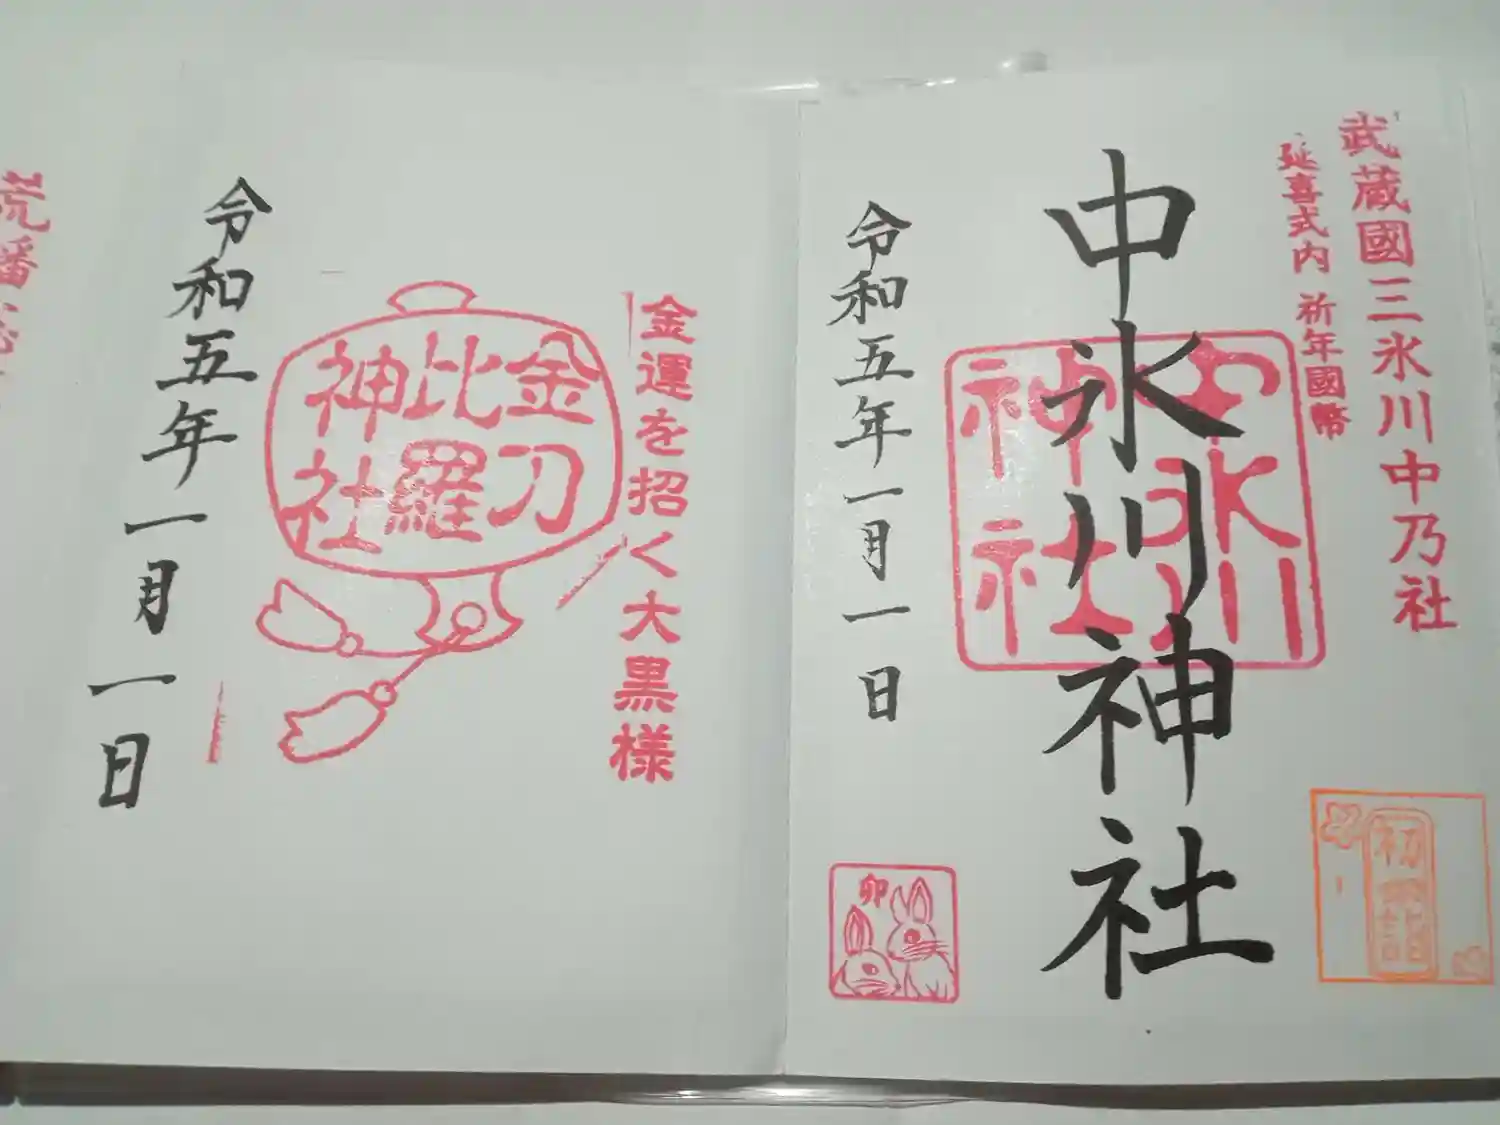 武蔵國三氷川中乃社
延喜式内 祈年國幣
中氷川神社
中氷川
神社
令和五年一月一日
初詣
卯
金運を招く大黒様
金刀
比羅
神社
令和五年一月一日
荒幡